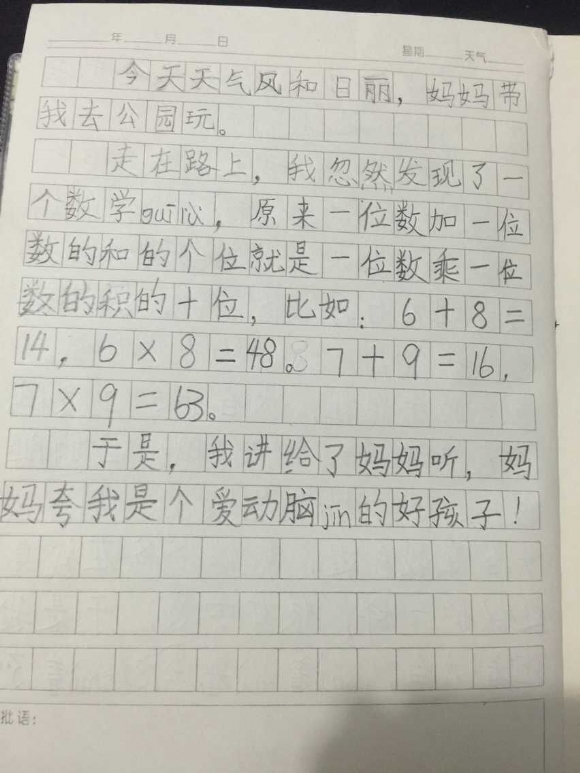 年 月 日 星期 天气
今天天气风和日丽，妈妈带
我去公园玩。
走在路上，我忽然发现了一
个数学guīlǜ，原来一位数加一位
数的和的个位就是一位数乘一位
数的积的十位，比如：6+8=
14，6×8=48。7+9=16，
7×9=63。
于是，我讲给了妈妈听，妈
妈夸我是个爱动脑jīn的好孩子！
批语：